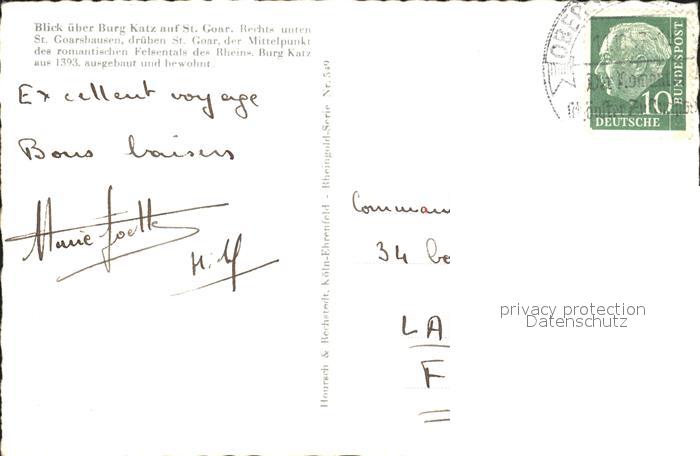 Blick über Burg Katz auf St. Goar. Rechts unten
St. Goarshausen, drüben St. Goar, der Mittelpunkt
des romantischen Felsentals des Rheins. Burg Katz
aus 1393, ausgebaut und bewohnt.
Excellent voyage
Bons baisers
Marie Joette
Hoursch & Bechstedt, Köln-Ehrenfeld - Rheingold-Serie Nr. 549
OBER
Der
10
DEUTSCHE
BUNDESPOST
Comman
34 bo
LA
F
privacy protection
Datenschutz